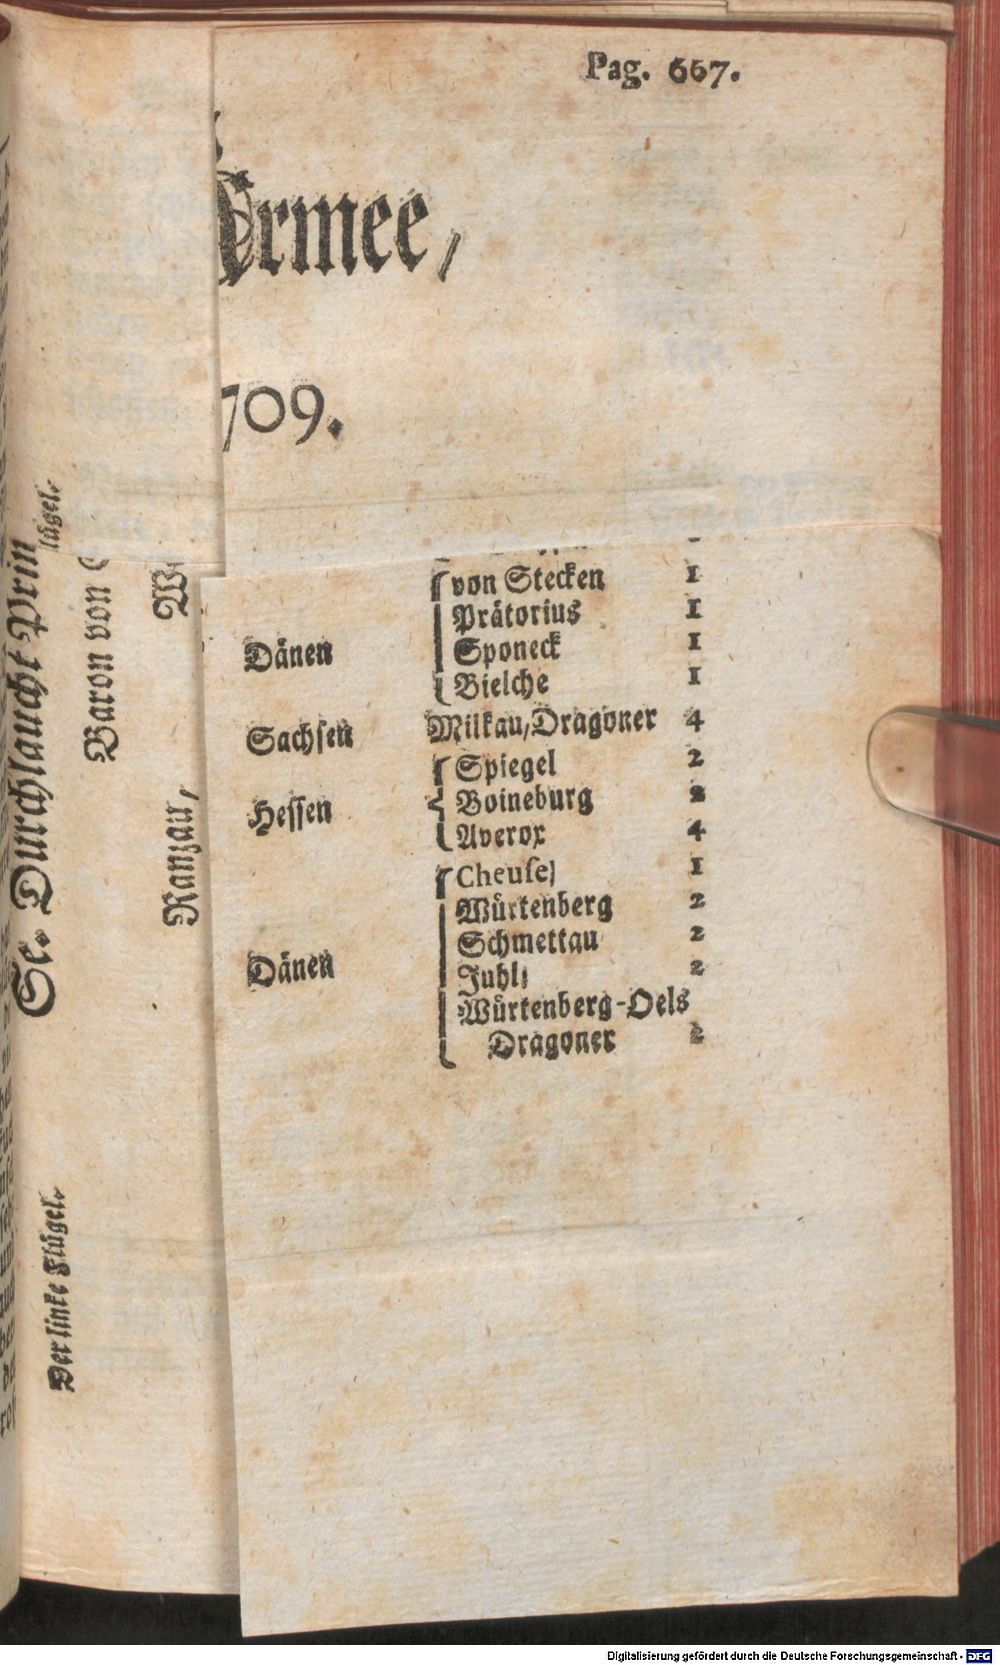 Pag. 667.
Armee,
709.
von Stecken 1
Prätorius 1
Dänen
Sponeck 1
Bielche 1
Sachsen Milkau/Dragoner 4
Spiegel 2
Hessen Boineburg 2
Averox 4
Cheusel 1
Würtenberg 2
Schmettau 2
Dänen Juhl 2
Würtenberg-Oels
Dragoner 2
Se. Durchlaucht Prin
lügel.
Baron von
Ranzau,
Der linke Flügel.
Digitalisierung gefördert durch die Deutsche Forschungsgemeinschaft - DFG